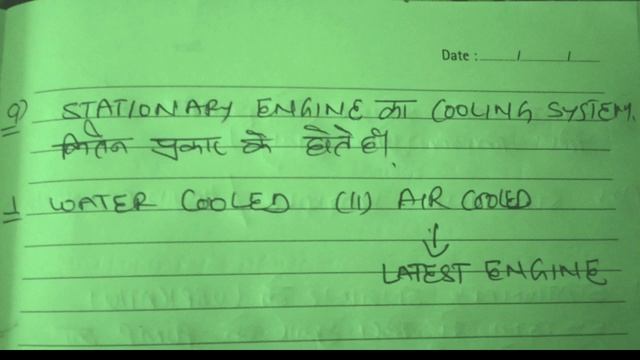 Date : / /
Q) STATIONARY ENGINE का COOLING SYSTEM.
कितने प्रकार के होते हैं।
1 WATER COOLED (II) AIR COOLED
↓
LATEST ENGINE